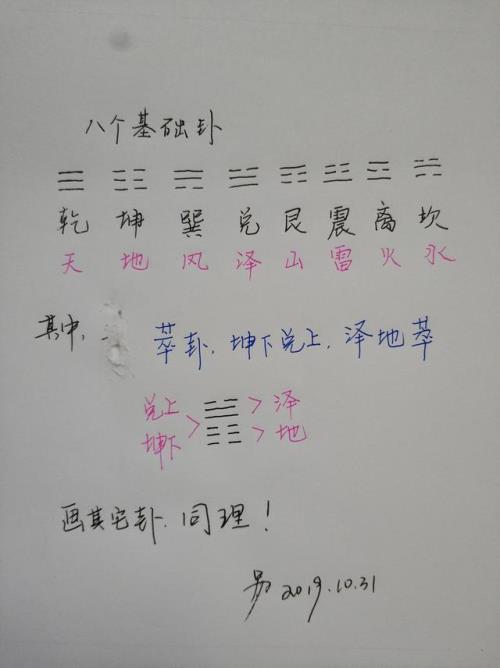 八个基础卦
☰ ☷ ☴ ☱ ☶ ☳ ☲ ☵
乾 坤 巽 兑 艮 震 离 坎
天 地 风 泽 山 雷 火 水
其中, 萃卦, 坤下兑上, 泽地萃
兑上 > ☱ > 泽
坤下 ☷ > 地
画其它卦, 同理!
2019.10.31